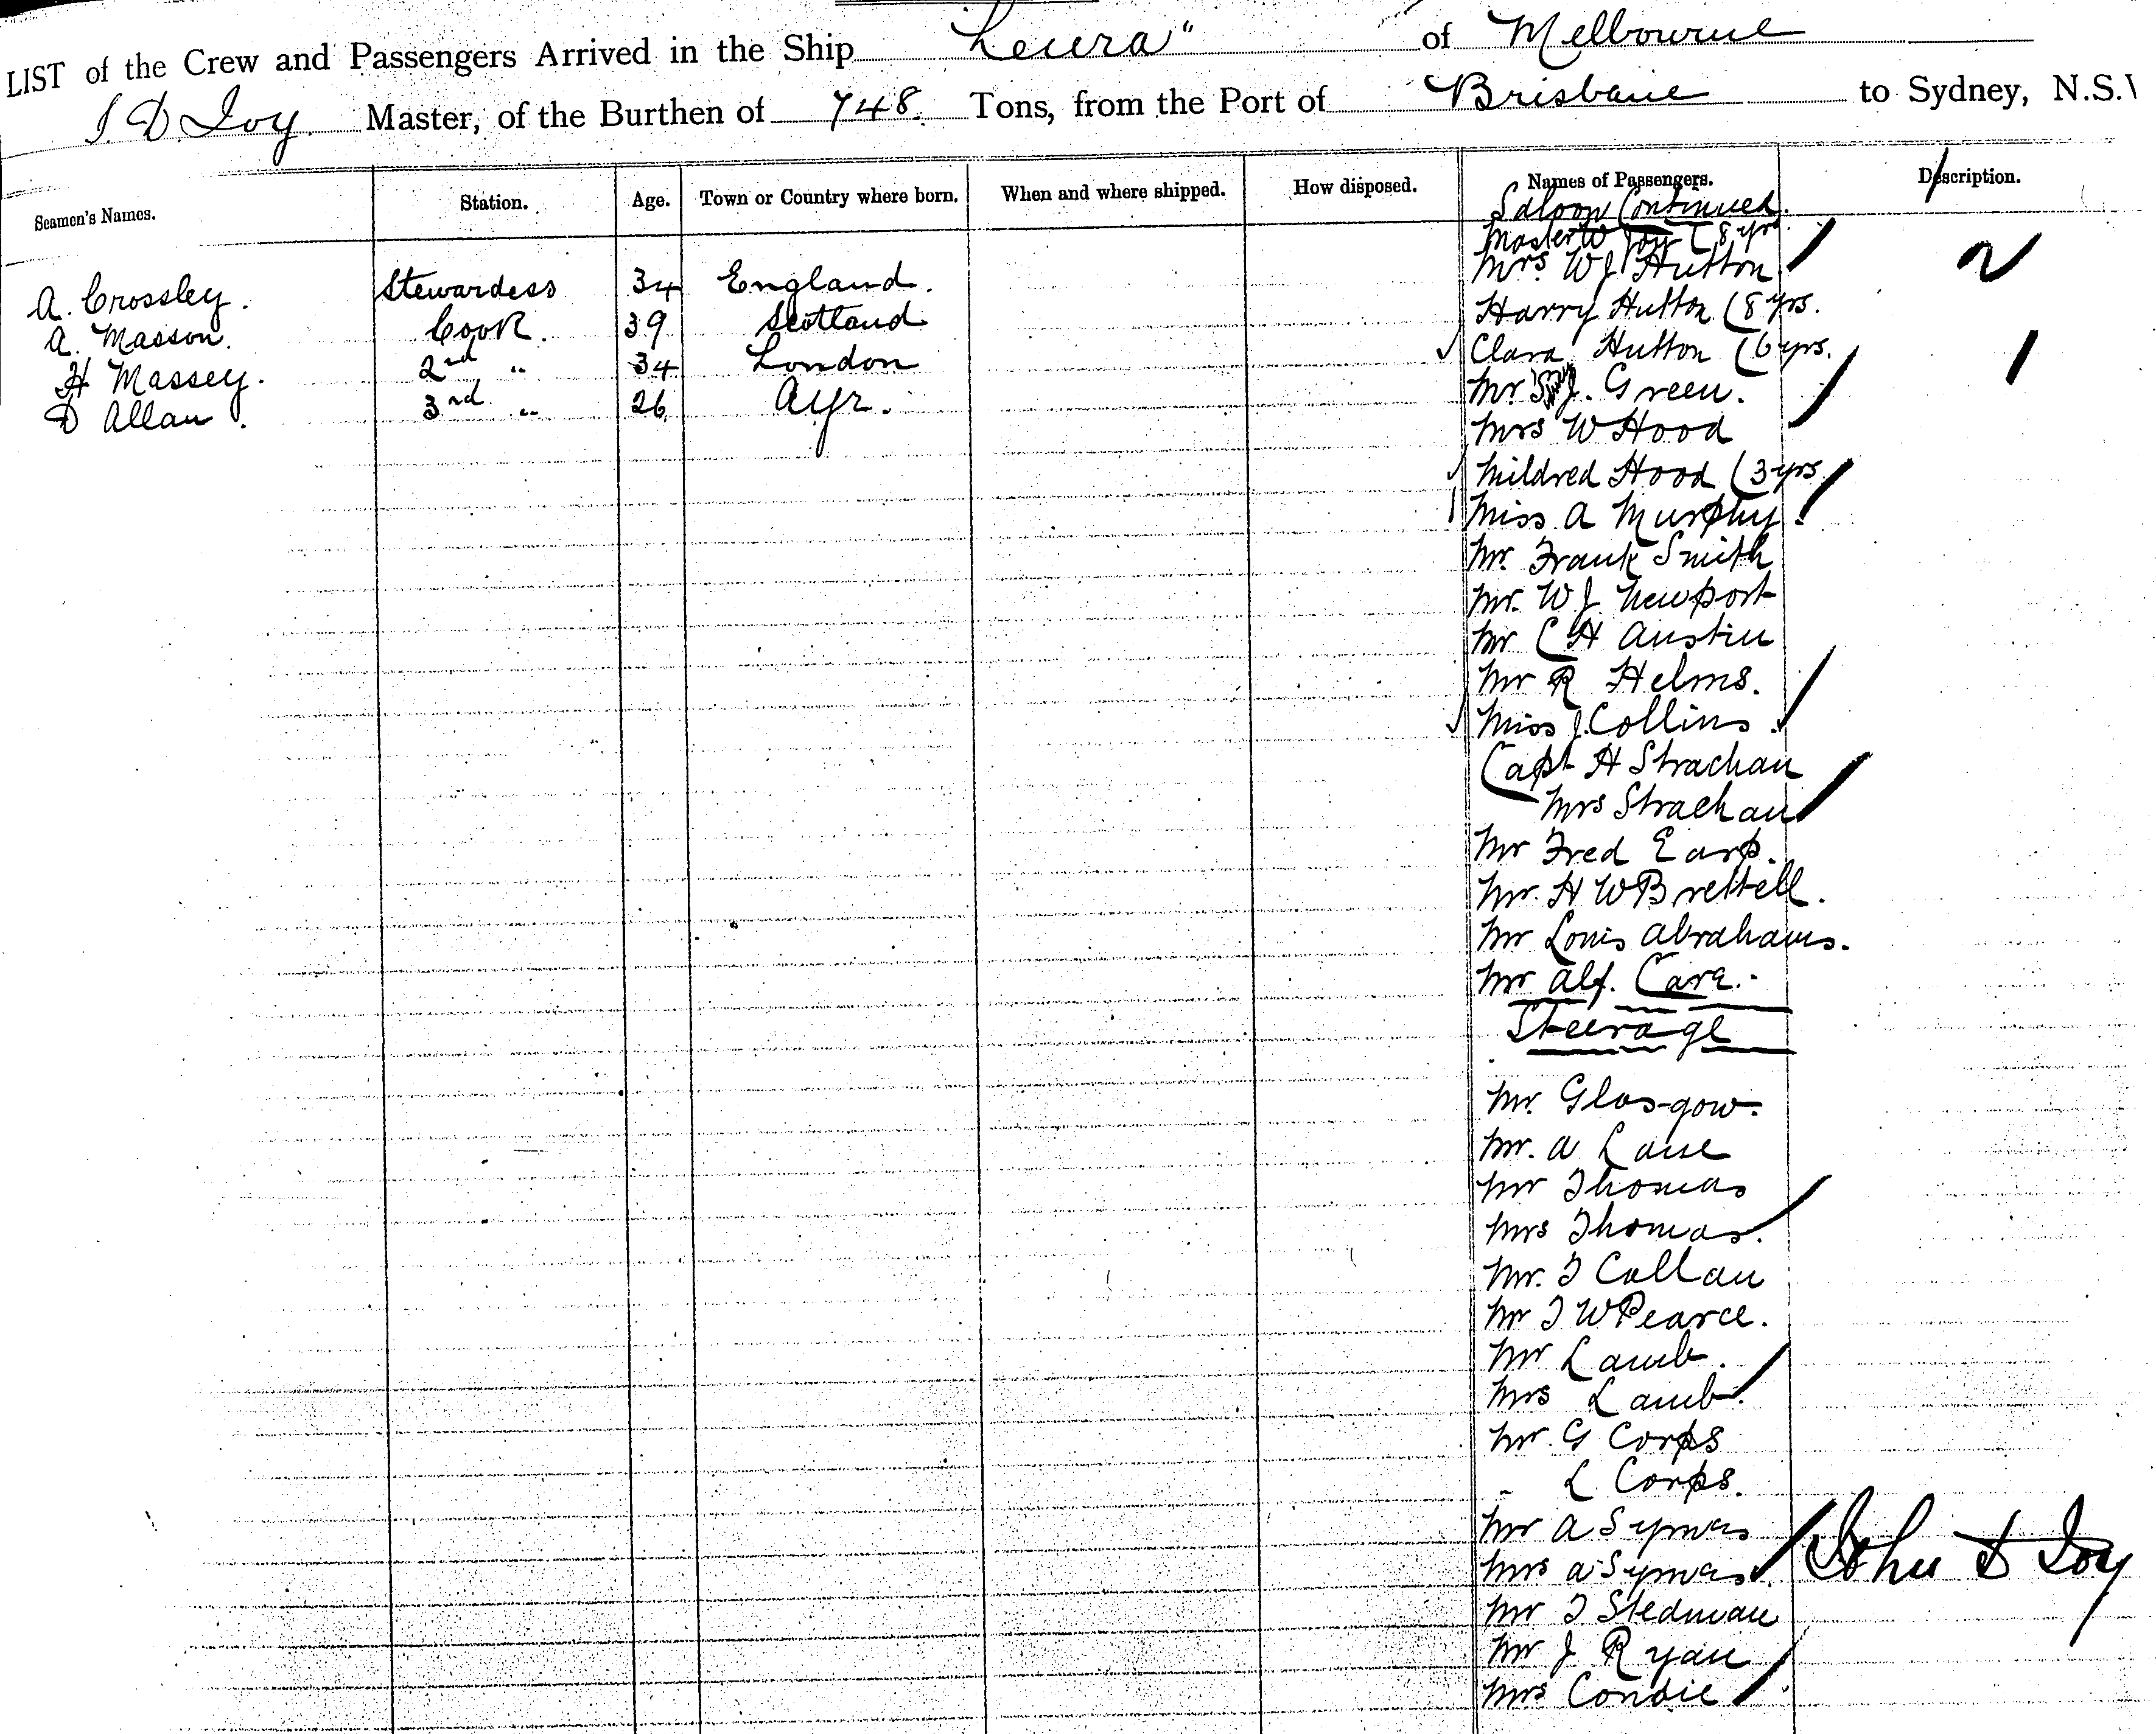 LIST of the Crew and Passengers Arrived in the Ship Leura" of Melbourne
J. D. Joy. Master, of the Burthen of 748. Tons, from the Port of Brisbane to Sydney, N.S.
Seamen's Names. Station. Age. Town or Country where born. When and where shipped. How disposed. Names of Passengers. Description.
Saloon Continued.
Master W Joy (8 yrs
Mrs W J Hutton
A. Crossley. Stewardess 34 England.
Harry Hutton (8 yrs.
A. Masson. Cook. 39 Scotland
Clara Hutton (6 yrs.
H Massey. 2nd " 34 London
Mr J. Green.
D Allan. 3rd " 26 Ayr.
Mrs W Hood
Mildred Hood (3 yrs.
Miss A Murphy.
Mr. Frank Smith
Mr. W J Newport
Mr C H Austin
Mr R Helms.
Miss J. Collins.
Capt H Strachan
Mrs Strachan
Mr Fred Earp.
Mr. H W Brettell.
Mr Louis Abrahams.
Mr Alf. Care.
Steerage
Mr. Glasgow.
Mr. A Lane
Mr Thomas
Mrs Thomas.
Mr. T Callan
Mr T W Pearce.
Mr Lamb.
Mrs Lamb.
Mr. G Corps
" L Corps.
Mr A Symes
Mrs A Symes
John D Joy
Mr T Stedman
Mr J Ryan
Mrs Condie